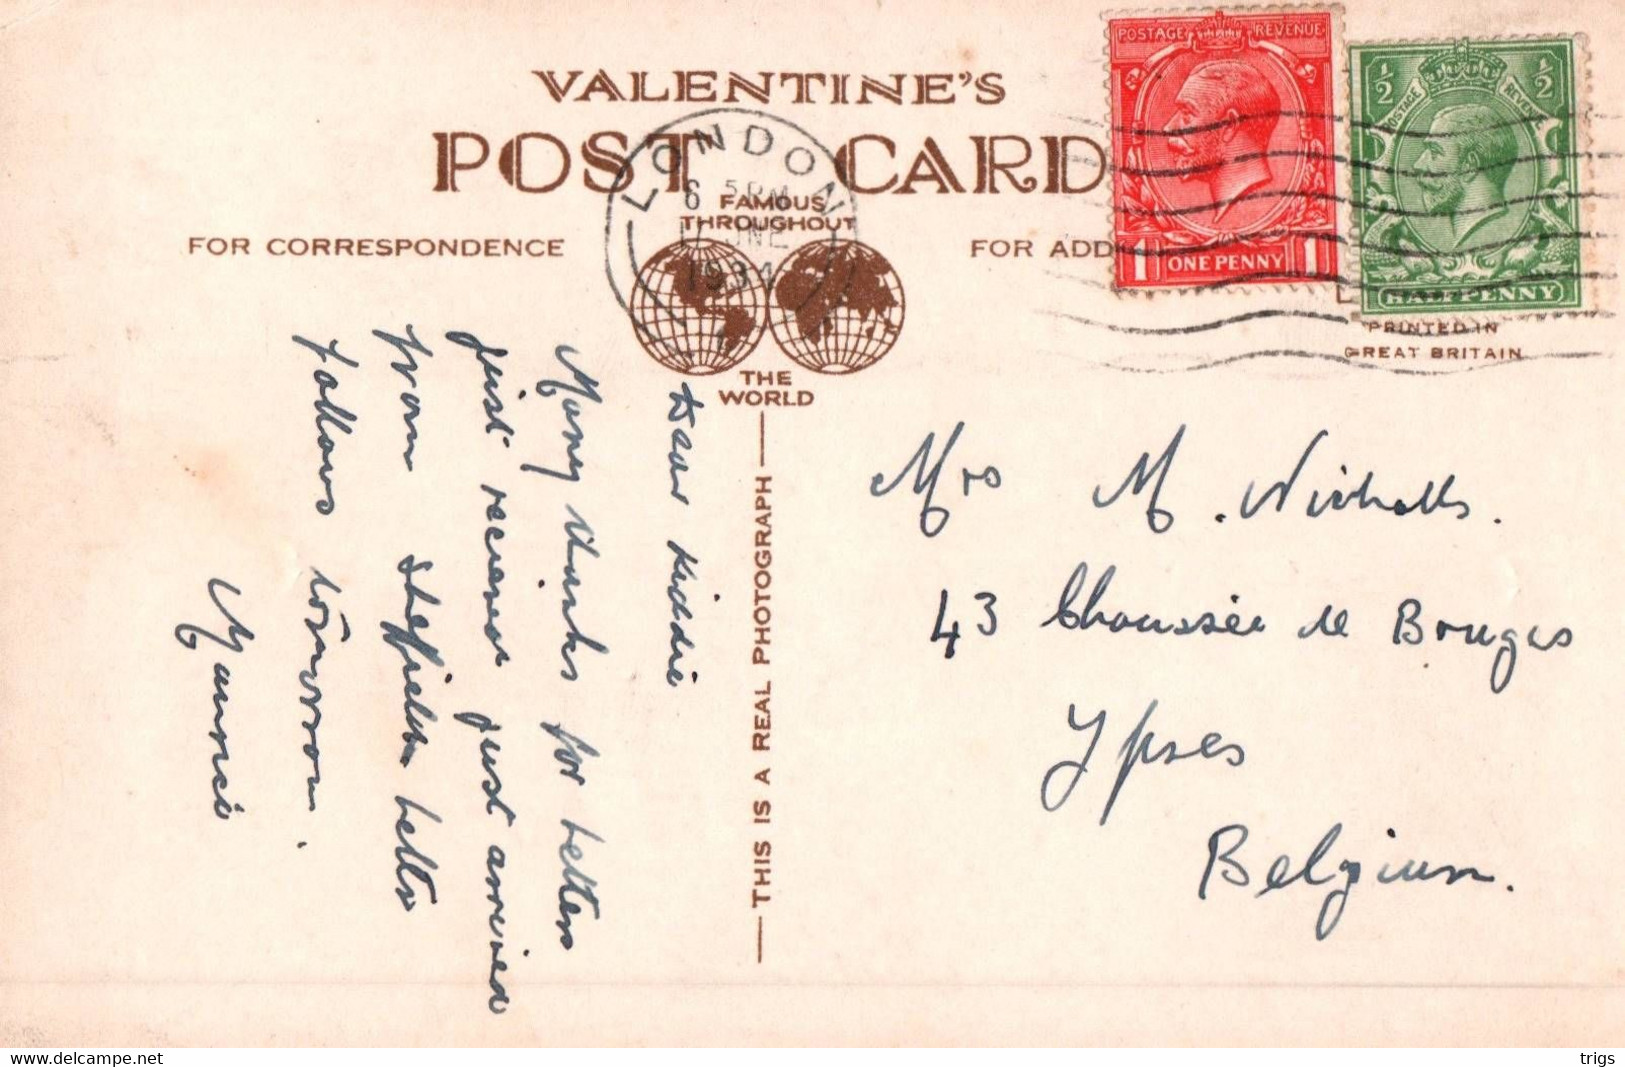 VALENTINE'S
POST CARD
FAMOUS
THROUGHOUT
THE
WORLD
FOR CORRESPONDENCE
FOR ADD
LONDON
6
5 PM
JNE
1934
POSTAGE REVENUE
1 ONE PENNY 1
1/2 1/2
POSTAGE REVENUE
HALFPENNY
PRINTED IN
GREAT BRITAIN
THIS IS A REAL PHOTOGRAPH
Dear Kiddie
Many thanks for letters
just received just arrived
from Sheffield letter
follows tomorrow.
Maurice
Mrs M. Nicholls.
43 Chaussée de Bruges
Ypres
Belgium.
www.delcampe.net
trigs